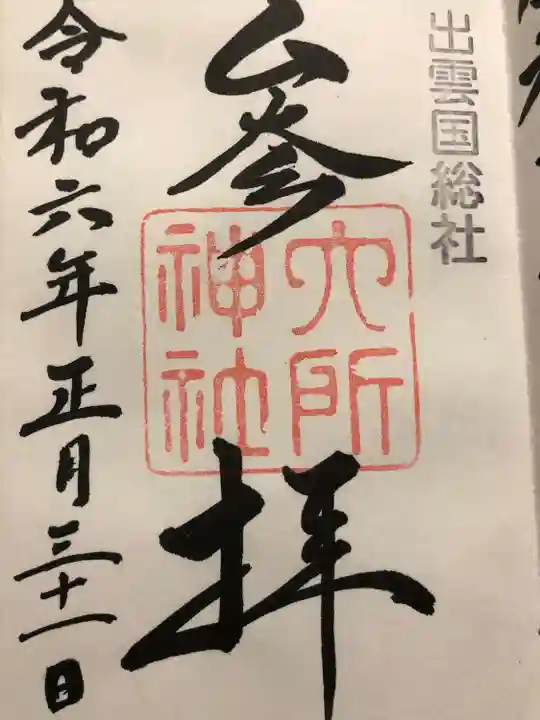 出雲国総社
参拝
六所
神社
令和六年正月三十一日